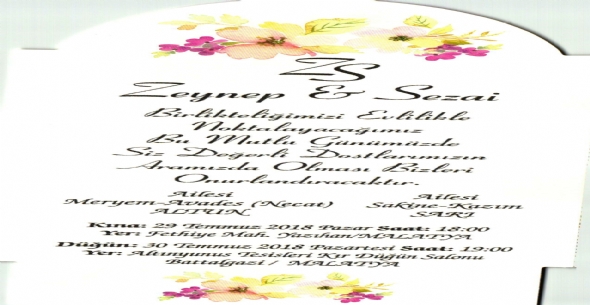 ZS
Zeynep & Sezai
Birlikteliğimizi Evlilikle
Noktalayacağımız
Bu Mutlu Günümüzde
Siz Değerli Dostlarımızın
Aramızda Olması Bizleri
Onurlandıracaktır.
Ailesi
Meryem-Avades (Necat)
ALTUN
Ailesi
Sakine-Kazım
SARI
Kına: 29 Temmuz 2018 Pazar Saat: 18:00
Yer: Fethiye Mah. Yazıhan/MALATYA
Düğün: 30 Temmuz 2018 Pazartesi Saat: 19:00
Yer: Altunyunus Tesisleri Kır Düğün Salonu
Battalgazi / MALATYA